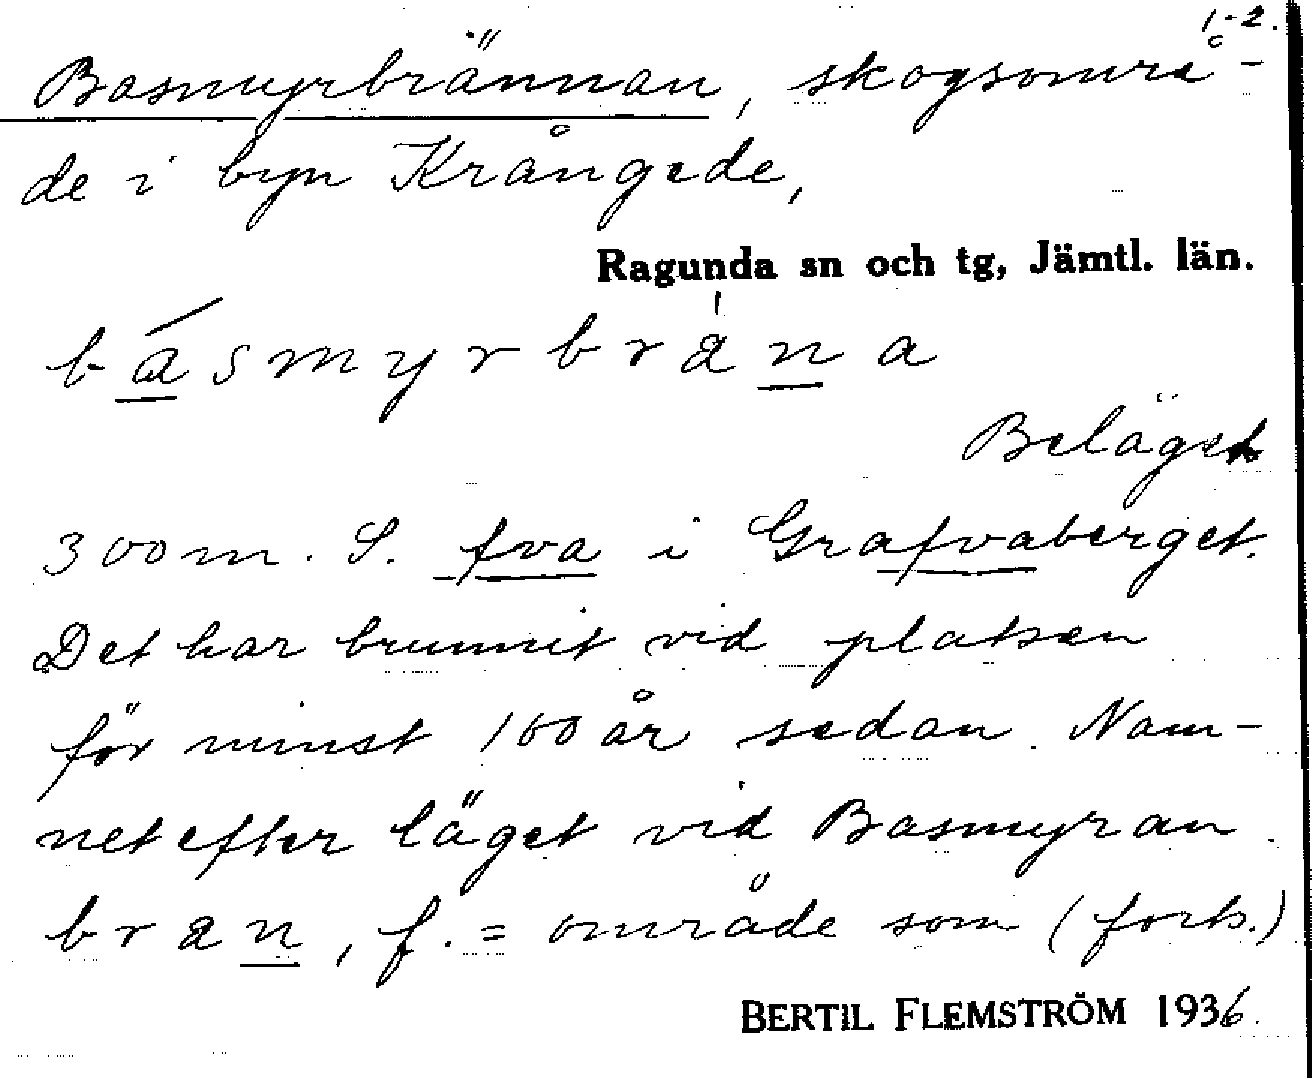 1-2.
Basmyrbrännan, skogsområ-
de i byn Krångede,
Ragunda sn och tg, Jämtl. län.
básmyrbrana
Beläget
300 m. S. fva i Grafvaberget.
Det har brunnit vid platsen
för minst 100 år sedan. Nam-
net efter läget vid Basmyran.
bran, f. = område som (forts.)
BERTIL FLEMSTRÖM 1936.